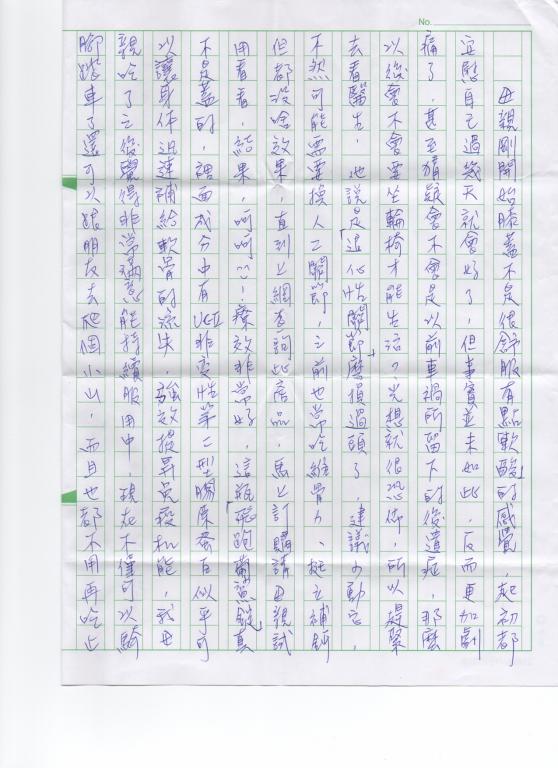 No.
母親剛開始膝蓋不是很舒服有點軟酸的感覺，起初都
安慰自己過幾天就會好了，但事實並未如此，反而更加劇
痛了，甚至猜疑會不會是以前車禍所留下的後遺症，那麼
以後會不會要坐輪椅才能生活？光想就很恐怖，所以趕緊
去看醫生，他說是「退化性關節磨損過頭了，建議少動它，
不然可能要換人工關節，之前也常吃維骨力、挺立補鈣
但都沒啥效果，直到上網查詢此商品，馬上訂購請母親試
用看看，結果，呵呵！療效非常好，這瓶「 鯊錠」真
不是蓋的，裡面成分中有UCII非變性第二型膠原蛋白似乎可
以讓身体迅速補給軟骨的流失，強效提昇免疫机能，我母
親吃了之後覺得非常滿意能持續服用中，現在不僅可以騎
腳踏車了還可以結朋友去爬個小山，而且也都不用再吃止